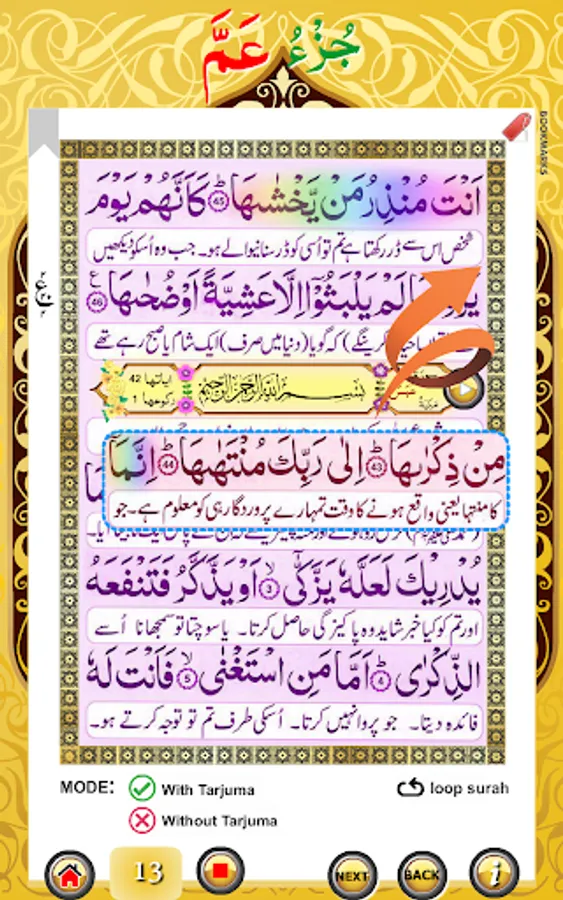 جُزْءُ عَمَّ
BOOKMARKS
اَنْتَ مُنْذِرُ مَنْ يَّخْشٰىهَا ﴿45﴾ كَاَنَّهُمْ يَوْمَ
شخص اس سے ڈر رکھتا ہے تم تو اُسی کو ڈر سنانیوالے ہو۔ جب وہ اُسکو دیکھیں
لَمْ يَلْبَثُوْۤا اِلَّا عَشِيَّةً اَوْ ضُحٰىهَا ﴿46﴾
کرینگے) کہ گویا (دنیا میں صرف) ایک شام یا صبح رہے تھے
اٰیاتھا 42
رکوعھا 1
بِسْمِ اللهِ الرَّحْمٰنِ الرَّحِيْمِ
عبس
مکیة
مِنْ ذِكْرٰىهَا ﴿43﴾ اِلٰى رَبِّكَ مُنْتَهٰىهَا ﴿44﴾ اِنَّمَاۤ
کا منتہا یعنی واقع ہونے کا وقت تمہارے پروردگار ہی کو معلوم ہے۔ جو
يُدْرِيْكَ لَعَلَّهٗ يَزَّكّٰۤى ﴿3﴾ اَوْ يَذَّكَّرُ فَتَنْفَعَهُ
اور تم کو کیا خبر شاید وہ پاکیزگی حاصل کرتا۔ یا سوچتا تو سمجھانا اُسے
الذِّكْرٰى ﴿4﴾ اَمَّا مَنِ اسْتَغْنٰى ﴿5﴾ فَاَنْتَ لَهٗ
فائدہ دیتا۔ جو پروا نہیں کرتا۔ اُسکی طرف تم تو توجہ کرتے ہو۔
MODE:
With Tarjuma
loop surah
Without Tarjuma
13
NEXT
BACK
i